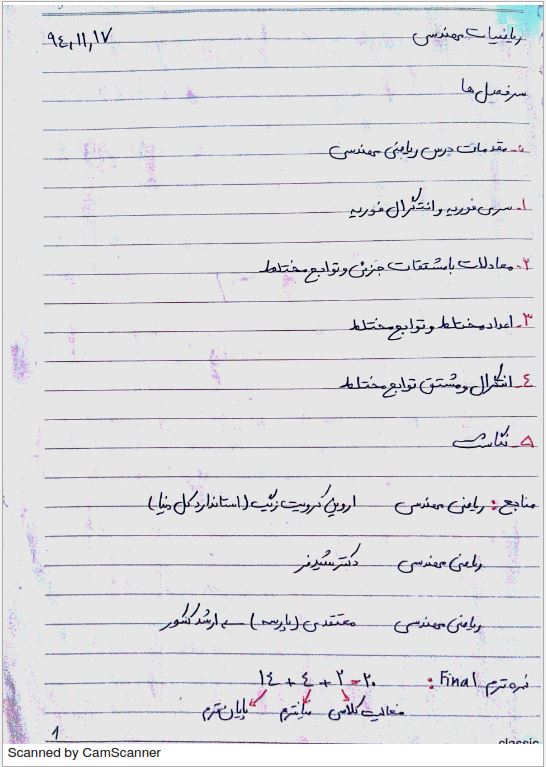 ریاضیات مهندسی ۹۴,۱۱,۱۷
سرفصل ها
۰- مقدمات درس ریاضی مهندسی
۱- سری فوریه و انتگرال فوریه
۲- معادلات با مشتقات جزئی و توابع مختلط
۳- اعداد مختلط و توابع مختلط
۴- انتگرال و مشتق توابع مختلط
۵- نگاشت
منابع: ریاضی مهندسی اروین کرویت زیگ (استاندارد کل دنیا)
ریاضی مهندسی دکتر شیدفر
ریاضی مهندسی معتقدی (پارسه) → ارشد کشور
نمره ترم Final: ۱۴ + ۴ + ۲ = ۲۰
فعالیت کلاسی میانترم پایان ترم
1
classic
Scanned by CamScanner